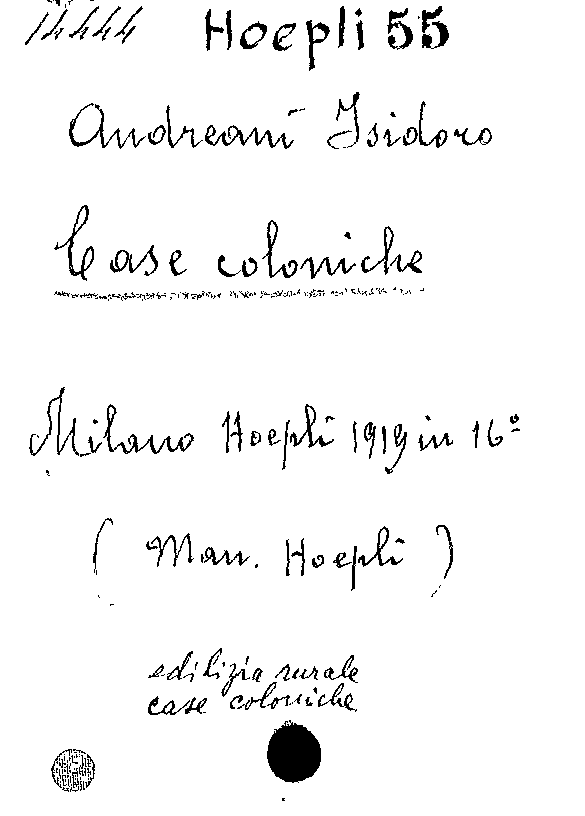 14444 Hoepli 55
Andreani Isidoro
Case coloniche
Milano Hoepli 1919 in 16º
( Man. Hoepli )
edilizia rurale
case coloniche